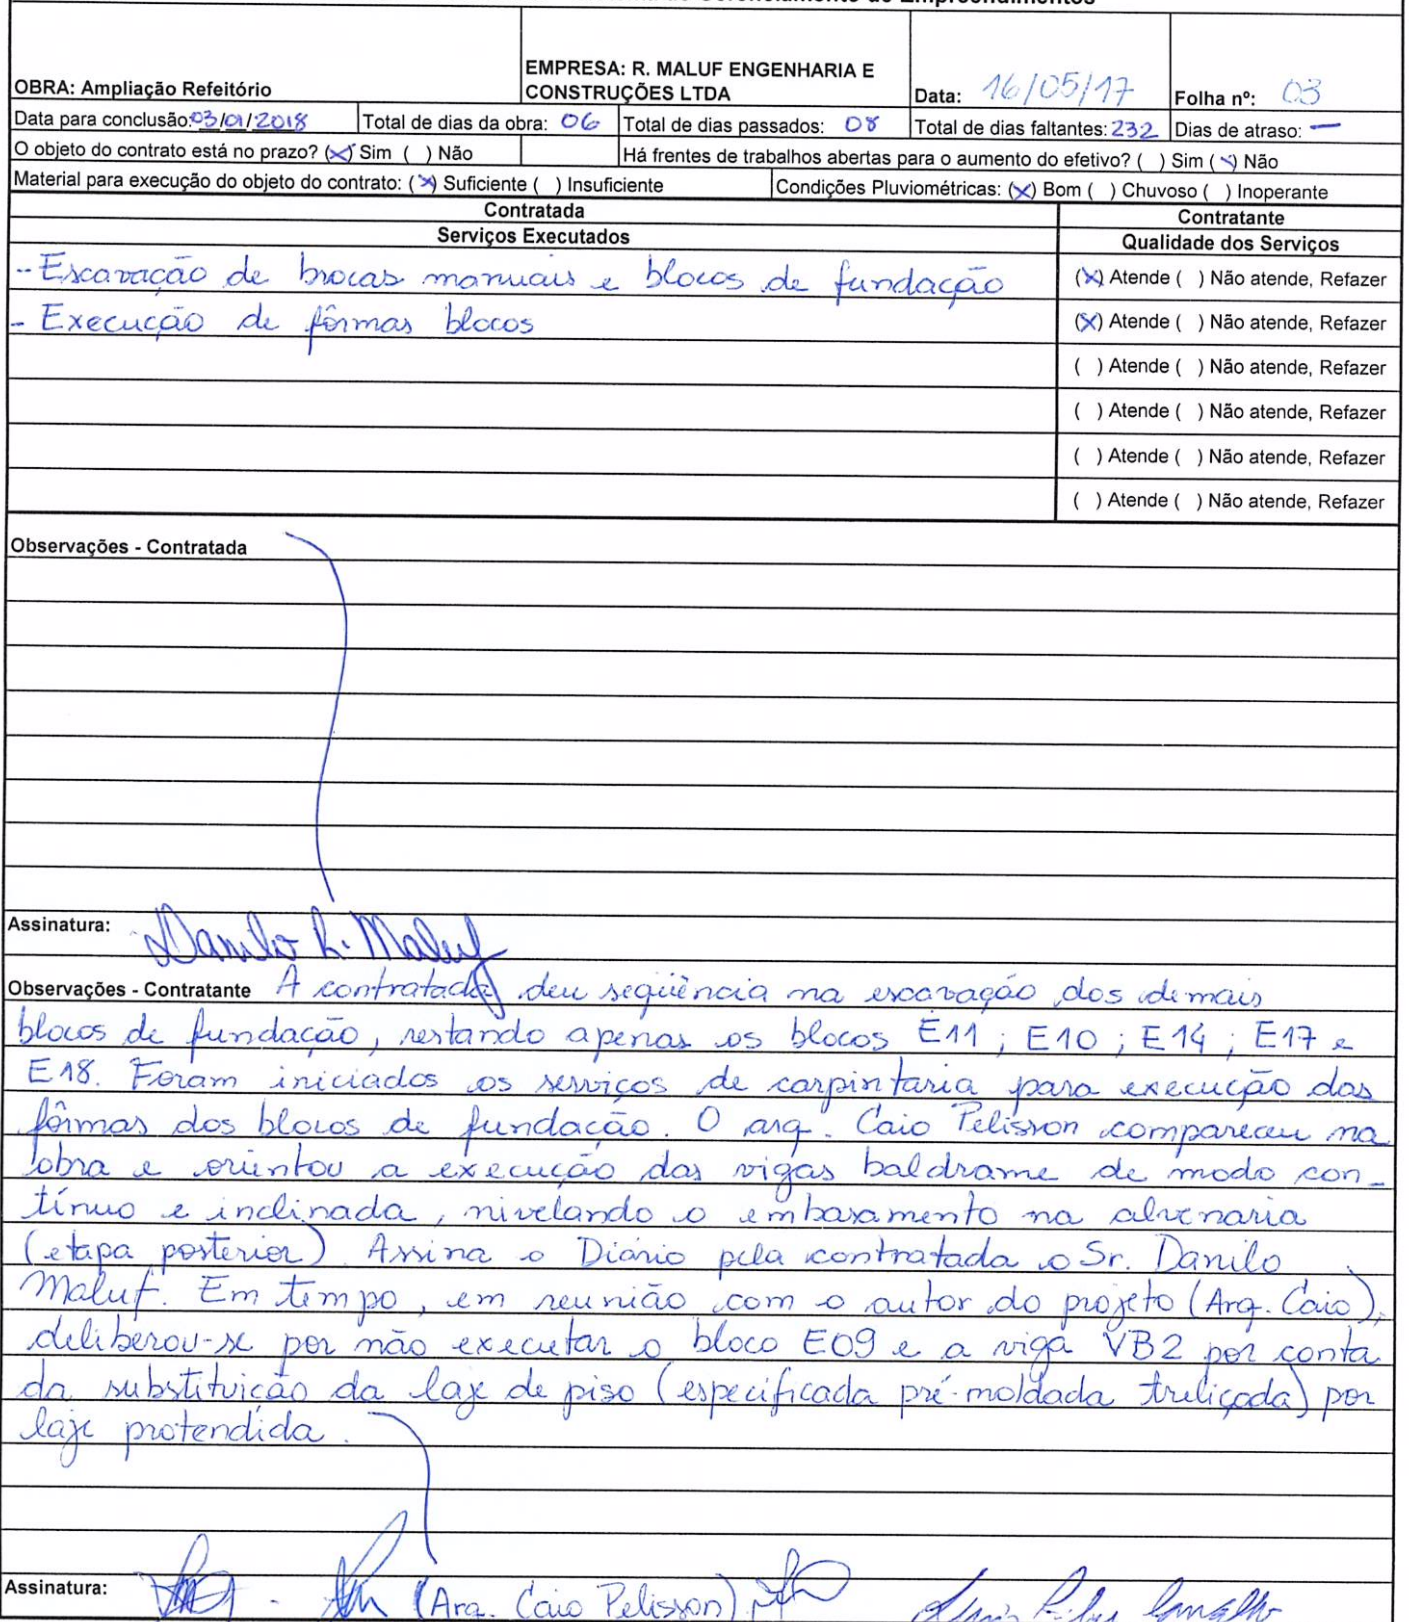 de Gerenciamento de Empreendimentos
OBRA: Ampliação Refeitório
EMPRESA: R. MALUF ENGENHARIA E
CONSTRUÇÕES LTDA
Data: 16/05/17
Folha nº: 03
Data para conclusão: 03/01/2018 Total de dias da obra: 06 Total de dias passados: 08 Total de dias faltantes: 232 Dias de atraso: —
O objeto do contrato está no prazo? (x) Sim ( ) Não Há frentes de trabalhos abertas para o aumento do efetivo? ( ) Sim (x) Não
Material para execução do objeto do contrato: (x) Suficiente ( ) Insuficiente Condições Pluviométricas: (x) Bom ( ) Chuvoso ( ) Inoperante
Contratada Contratante
Serviços Executados Qualidade dos Serviços
- Escavação de brocas manuais e blocos de fundação (x) Atende ( ) Não atende, Refazer
- Execução de fôrmas blocos (x) Atende ( ) Não atende, Refazer
( ) Atende ( ) Não atende, Refazer
( ) Atende ( ) Não atende, Refazer
( ) Atende ( ) Não atende, Refazer
( ) Atende ( ) Não atende, Refazer
Observações - Contratada
Assinatura: Danilo R. Maluf
Observações - Contratante A contratada deu seqüência na escavação dos demais
blocos de fundação, restando apenas os blocos E11 ; E10 ; E14 ; E17 e
E18. Foram iniciados os serviços de carpintaria para execução das
fôrmas dos blocos de fundação. O arq. Caio Pelisson compareceu na
obra e orientou a execução das vigas baldrame de modo con-
tínuo e inclinada, nivelando o embasamento na alvenaria
(etapa posterior) Assina o Diário pela contratada o Sr. Danilo
Maluf. Em tempo, em reunião com o autor do projeto (Arq. Caio),
deliberou-se por não executar o bloco E09 e a viga VB2 por conta
da substituição da laje de piso (especificada pré-moldada treliçada) por
laje protendida.
Assinatura: (Arq. Caio Pelisson)